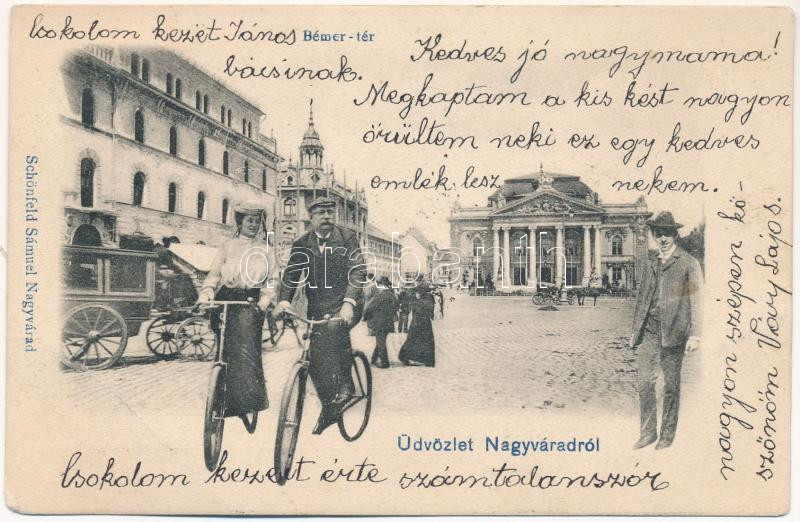 Csokolom kezét János
bácsinak.
Bémer-tér
Kedves jó nagymama!
Megkaptam a kis kést nagyon
örültem neki ez egy kedves
emlék lesz nekem.
darabanth
Schönfeld Sámuel Nagyvárad
Üdvözlet Nagyváradról
Csokolom kezeit érte számtalanszór
nagyon szépen kö-
szönöm Lajos.